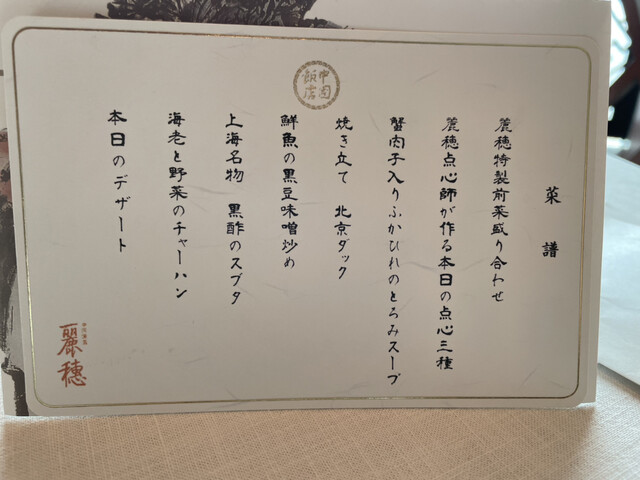 中国飯店
菜譜
麗穂特製前菜盛り合わせ
麗穂点心師が作る本日の点心三種
蟹肉子入りふかひれのとろみスープ
焼き立て 北京ダック
鮮魚の黒豆味噌炒め
上海名物 黒酢のスブタ
海老と野菜のチャーハン
本日のデザート
麗穂